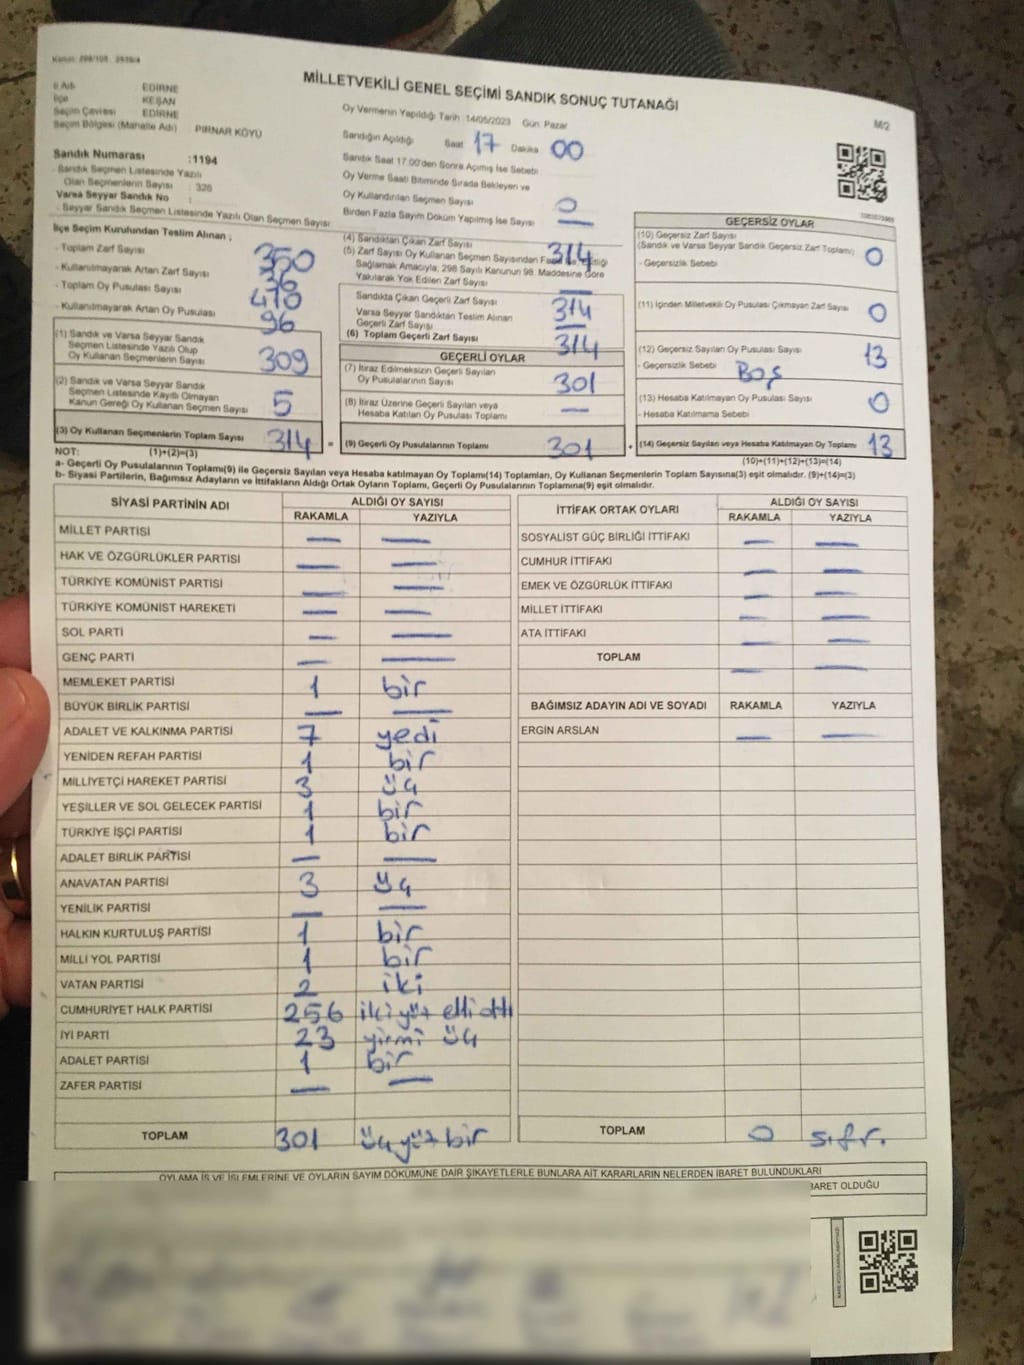 Kanun: 298/105 . 2839/4
MİLLETVEKİLİ GENEL SEÇİMİ SANDIK SONUÇ TUTANAĞI
M2
İl Adı EDİRNE
İlçe KEŞAN
Seçim Çevresi EDİRNE
Seçim Bölgesi (Mahalle Adı) PIRNAR KÖYÜ
Sandık Numarası :1194
- Sandık Seçmen Listesinde Yazılı
Olan Seçmenlerin Sayısı : 326
Varsa Seyyar Sandık No :
- Seyyar Sandık Seçmen Listesinde Yazılı Olan Seçmen Sayısı
Oy Vermenin Yapıldığı Tarih :14/05/2023 Gün: Pazar
Sandığın Açıldığı Saat 17 Dakika 00
Sandık Saat 17.00'den Sonra Açımış İse Sebebi
Oy Verme Saati Bitiminde Sırada Bekleyen ve
Oy Kullandırılan Seçmen Sayısı 0
Birden Fazla Sayım Döküm Yapılmış İse Sayısı —
İlçe Seçim Kurulundan Teslim Alınan ;
- Toplam Zarf Sayısı 350
- Kullanılmayarak Artan Zarf Sayısı 36
- Toplam Oy Pusulası Sayısı 410
- Kullanılmayarak Artan Oy Pusulası 96
(1) Sandık ve Varsa Seyyar Sandık
Seçmen Listesinde Yazılı Olup
Oy Kullanan Seçmenlerin Sayısı 309
(2) Sandık ve Varsa Seyyar Sandık
Seçmen Listesinde Kayıtlı Olmayan
Kanun Gereği Oy Kullanan Seçmen Sayısı 5
(3) Oy Kullanan Seçmenlerin Toplam Sayısı 314
(4) Sandıktan Çıkan Zarf Sayısı 314
(5) Zarf Sayısı Oy Kullanan Seçmen Sayısından
Sağlamak Amacıyla, 298 Sayılı Kanunun 98. Maddesine Göre
Yakılarak Yok Edilen Zarf Sayısı —
Sandıkta Çıkan Geçerli Zarf Sayısı 314
Varsa Seyyar Sandıktan Teslim Alınan
Geçerli Zarf Sayısı —
(6) Toplam Geçerli Zarf Sayısı 314
GEÇERLİ OYLAR
(7) İtiraz Edilmeksizin Geçerli Sayılan
Oy Pusulalarının Sayısı 301
(8) İtiraz Üzerine Geçerli Sayılan veya
Hesaba Katılan Oy Pusulası Toplamı —
= (9) Geçerli Oy Pusulalarının Toplamı 301
GEÇERSİZ OYLAR
(10) Geçersiz Zarf Sayısı
(Sandık ve Varsa Seyyar Sandık Geçersiz Zarf Toplamı) 0
- Geçersizlik Sebebi
(11) İçinden Milletvekili Oy Pusulası Çıkmayan Zarf Sayısı 0
(12) Geçersiz Sayılan Oy Pusulası Sayısı 13
- Geçersizlik Sebebi Boş
(13) Hesaba Katılmayan Oy Pusulası Sayısı 0
- Hesaba Katılmama Sebebi
+ (14) Geçersiz Sayılan veya Hesaba Katılmayan Oy Toplamı 13
NOT: (1)+(2)=(3)
(10)+(11)+(12)+(13)=(14)
a- Geçerli Oy Pusulalarının Toplamı(9) ile Geçersiz Sayılan veya Hesaba katılmayan Oy Toplamı(14) Toplamları, Oy Kullanan Seçmenlerin Toplam Sayısına(3) eşit olmalıdır. (9)+(14)=(3)
b- Siyasi Partilerin, Bağımsız Adayların ve İttifakların Aldığı Ortak Oyların Toplamı, Geçerli Oy Pusulalarının Toplamına(9) eşit olmalıdır.
SİYASİ PARTİNİN ADI ALDIĞI OY SAYISI
RAKAMLA YAZIYLA
MİLLET PARTİSİ — —
HAK VE ÖZGÜRLÜKLER PARTİSİ — —
TÜRKİYE KOMÜNİST PARTİSİ — —
TÜRKİYE KOMÜNİST HAREKETİ — —
SOL PARTİ — —
GENÇ PARTİ — —
MEMLEKET PARTİSİ 1 bir
BÜYÜK BİRLİK PARTİSİ — —
ADALET VE KALKINMA PARTİSİ 7 yedi
YENİDEN REFAH PARTİSİ 1 bir
MİLLİYETÇİ HAREKET PARTİSİ 3 üç
YEŞİLLER VE SOL GELECEK PARTİSİ 1 bir
TÜRKİYE İŞÇİ PARTİSİ 1 bir
ADALET BİRLİK PARTİSİ — —
ANAVATAN PARTİSİ 3 üç
YENİLİK PARTİSİ — —
HALKIN KURTULUŞ PARTİSİ 1 bir
MİLLİ YOL PARTİSİ 1 bir
VATAN PARTİSİ 2 iki
CUMHURİYET HALK PARTİSİ 256 iki yüz elli altı
İYİ PARTİ 23 yirmi üç
ADALET PARTİSİ 1 bir
ZAFER PARTİSİ — —
TOPLAM 301 üç yüz bir
İTTİFAK ORTAK OYLARI ALDIĞI OY SAYISI
RAKAMLA YAZIYLA
SOSYALİST GÜÇ BİRLİĞİ İTTİFAKI — —
CUMHUR İTTİFAKI — —
EMEK VE ÖZGÜRLÜK İTTİFAKI — —
MİLLET İTTİFAKI — —
ATA İTTİFAKI — —
TOPLAM — —
BAĞIMSIZ ADAYIN ADI VE SOYADI RAKAMLA YAZIYLA
ERGİN ARSLAN — —
TOPLAM 0 sıfır.
OYLAMA İŞ VE İŞLEMLERİNE VE OYLARIN SAYIM DÖKÜMÜNE DAİR ŞİKAYETLERLE BUNLARA AİT KARARLARIN NELERDEN İBARET BULUNDUKLARI
BARET OLDUĞU